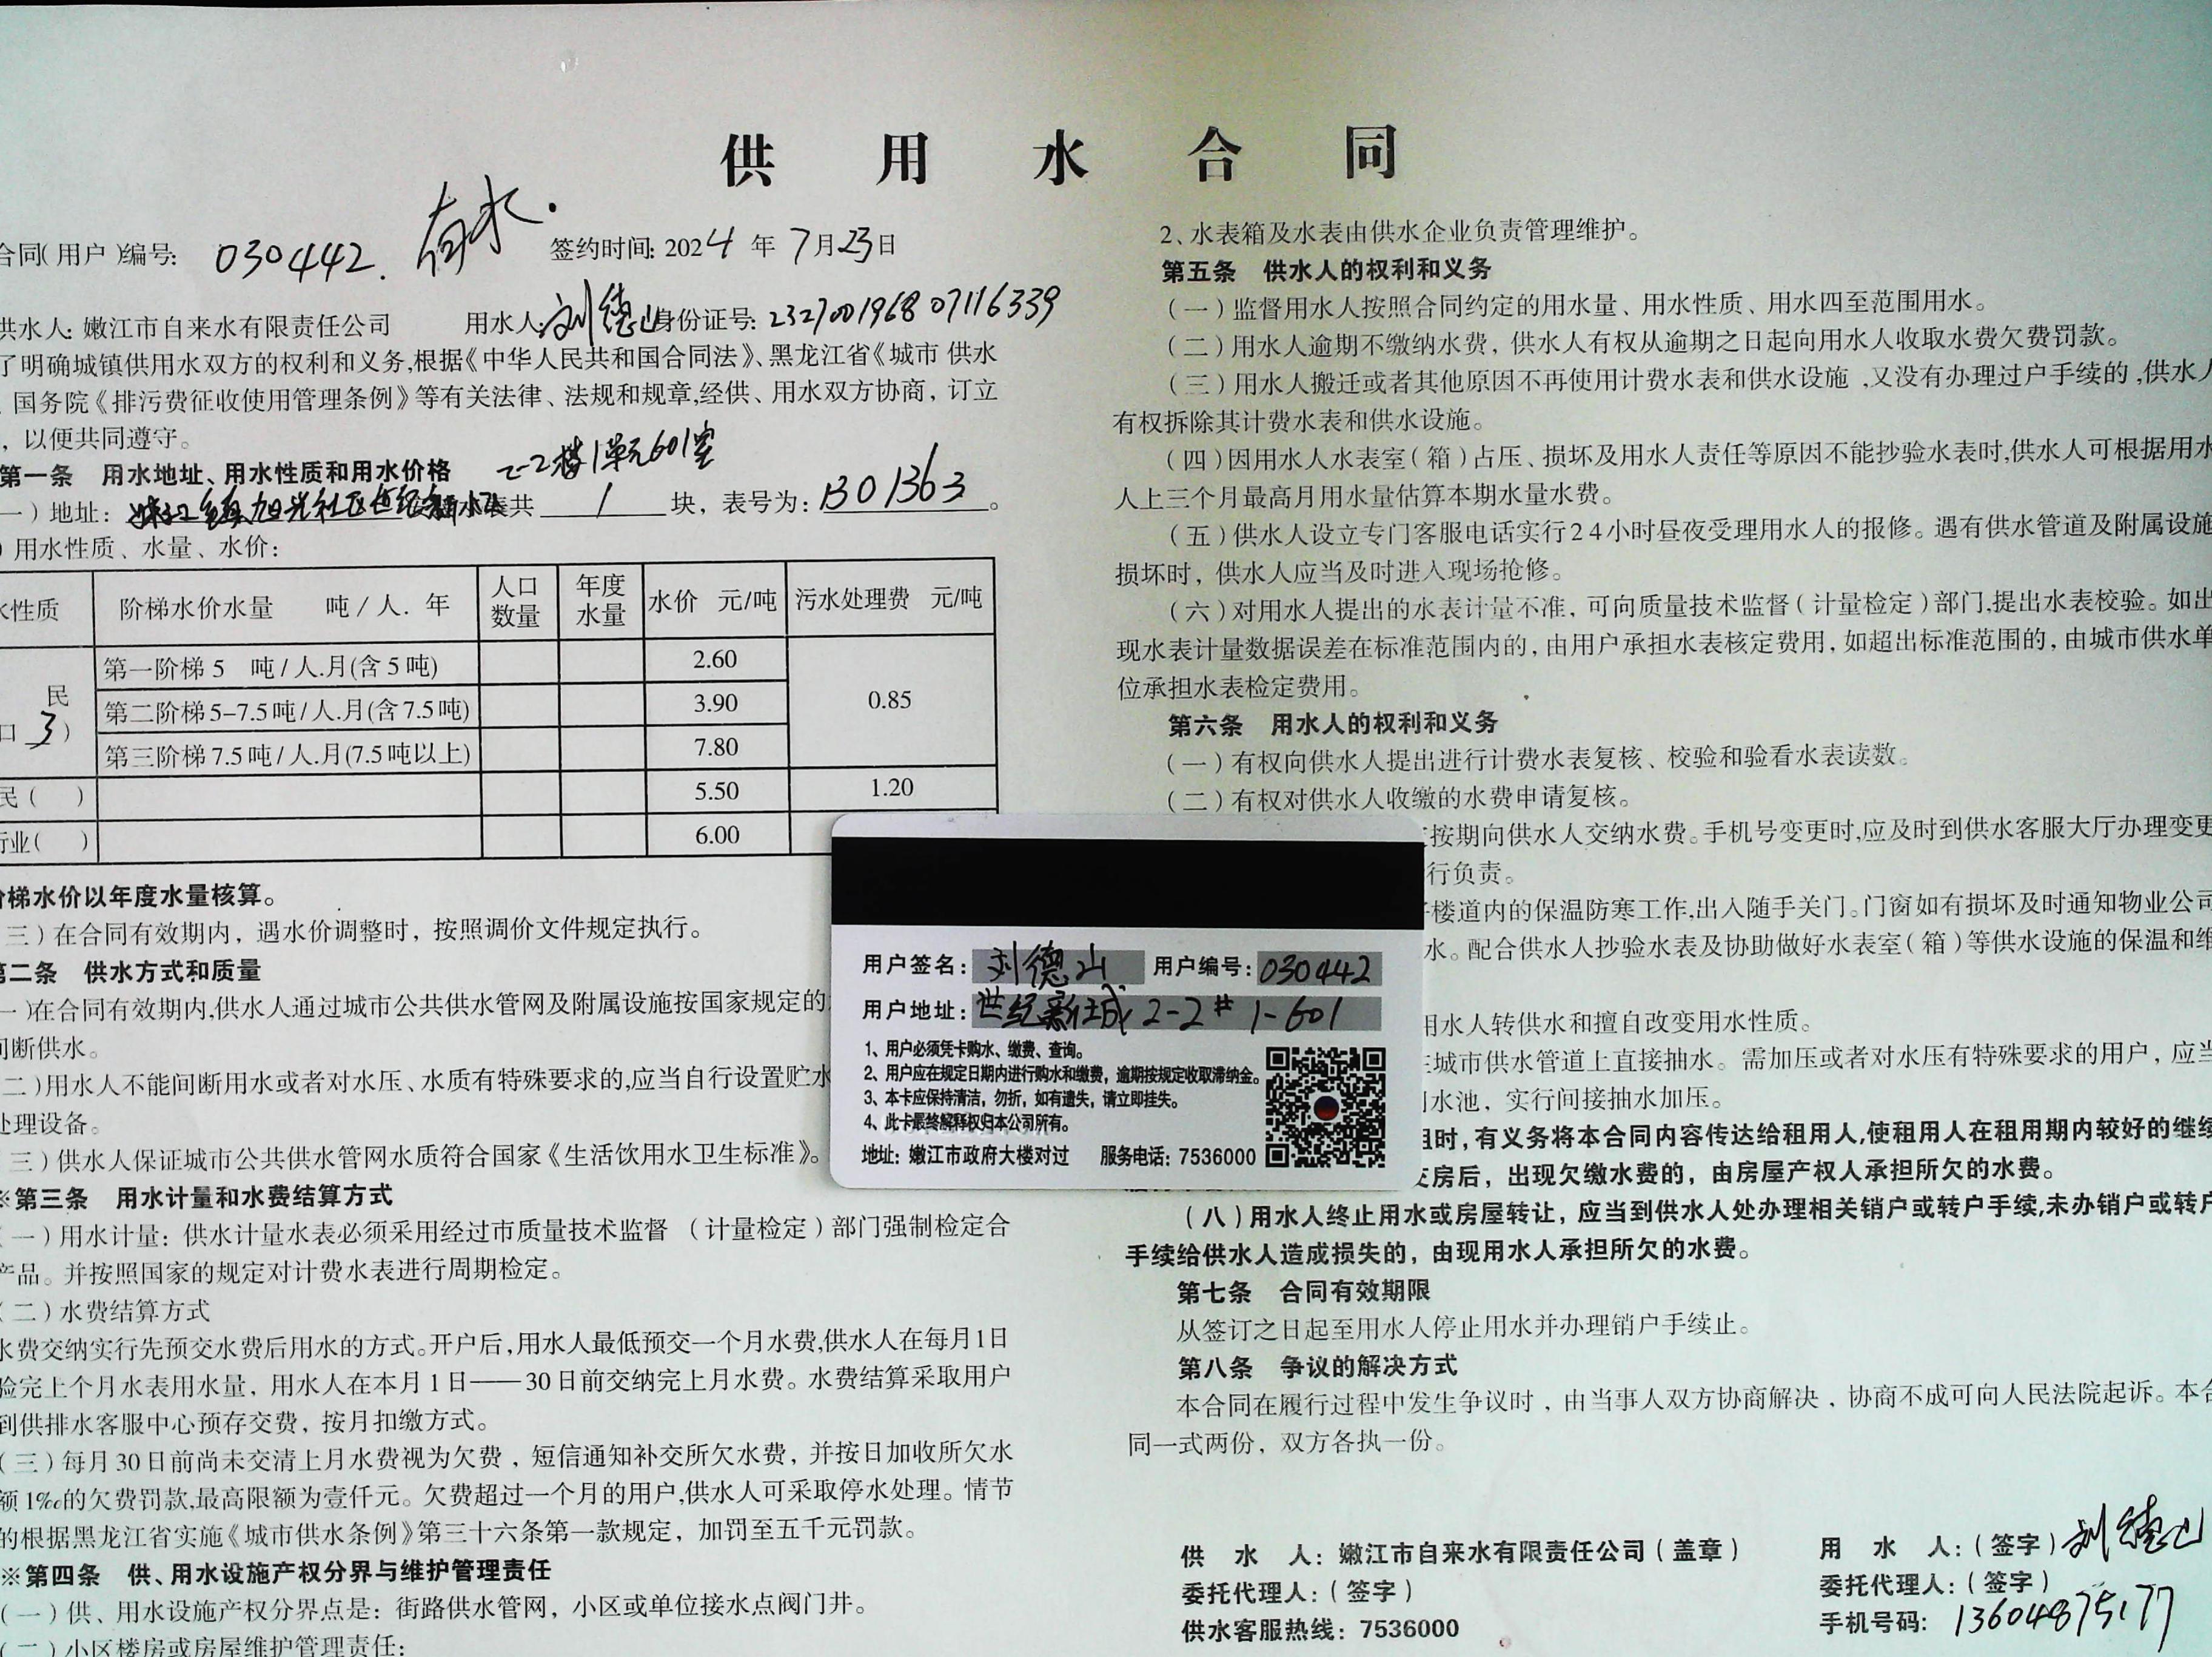 供 用 水 合 同
合同(用户)编号: 030442. 有水. 签约时间: 2024 年 7月23日
供水人: 嫩江市自来水有限责任公司 用水人: 刘德山 身份证号: 232700196807116339
了明确城镇供用水双方的权利和义务,根据《中华人民共和国合同法》、黑龙江省《城市 供水
国务院《排污费征收使用管理条例》等有关法律、法规和规章,经供、用水双方协商，订立
，以便共同遵守。
第一条 用水地址、用水性质和用水价格 2-2楼1单元601室
一）地址： 嫩江镇旭光社区世纪新城 水表共 1 块，表号为: 1301363 。
）用水性质、水量、水价：
水性质 阶梯水价水量 吨/人. 年 人口数量 年度水量 水价 元/吨 污水处理费 元/吨
民
口 3 ）
第一阶梯 5 吨/人.月(含 5 吨) 2.60
第二阶梯 5–7.5 吨/人.月(含 7.5 吨) 3.90 0.85
第三阶梯 7.5 吨/人.月(7.5 吨以上) 7.80
民（ ） 5.50 1.20
行业( ） 6.00
阶梯水价以年度水量核算。
三）在合同有效期内，遇水价调整时，按照调价文件规定执行。
第二条 供水方式和质量
一)在合同有效期内,供水人通过城市公共供水管网及附属设施按国家规定的
间断供水。
二)用水人不能间断用水或者对水压、水质有特殊要求的,应当自行设置贮水
处理设备。
三）供水人保证城市公共供水管网水质符合国家《生活饮用水卫生标准》。
※第三条 用水计量和水费结算方式
（一）用水计量：供水计量水表必须采用经过市质量技术监督 （计量检定）部门强制检定合
产品。并按照国家的规定对计费水表进行周期检定。
（二）水费结算方式
水费交纳实行先预交水费后用水的方式。开户后,用水人最低预交一个月水费,供水人在每月1日
验完上个月水表用水量，用水人在本月 1 日——30 日前交纳完上月水费。水费结算采取用户
到供排水客服中心预存交费，按月扣缴方式。
（三）每月 30 日前尚未交清上月水费视为欠费，短信通知补交所欠水费，并按日加收所欠水
额 1‰的欠费罚款,最高限额为壹仟元。欠费超过一个月的用户,供水人可采取停水处理。情节
的根据黑龙江省实施《城市供水条例》第三十六条第一款规定，加罚至五千元罚款。
※第四条 供、用水设施产权分界与维护管理责任
（一）供、用水设施产权分界点是：街路供水管网，小区或单位接水点阀门井。
（二）小区楼房或房屋维护管理责任：
2、水表箱及水表由供水企业负责管理维护。
第五条 供水人的权利和义务
（一）监督用水人按照合同约定的用水量、用水性质、用水四至范围用水。
（二）用水人逾期不缴纳水费，供水人有权从逾期之日起向用水人收取水费欠费罚款。
（三）用水人搬迁或者其他原因不再使用计费水表和供水设施,又没有办理过户手续的,供水人
有权拆除其计费水表和供水设施。
（四）因用水人水表室（箱）占压、损坏及用水人责任等原因不能抄验水表时,供水人可根据用水
人上三个月最高月用水量估算本期水量水费。
（五）供水人设立专门客服电话实行24小时昼夜受理用水人的报修。遇有供水管道及附属设施
损坏时，供水人应当及时进入现场抢修。
（六）对用水人提出的水表计量不准，可向质量技术监督（计量检定）部门,提出水表校验。如出
现水表计量数据误差在标准范围内的，由用户承担水表核定费用，如超出标准范围的，由城市供水单
位承担水表检定费用。
第六条 用水人的权利和义务
（一）有权向供水人提出进行计费水表复核、校验和验看水表读数。
（二）有权对供水人收缴的水费申请复核。
按期向供水人交纳水费。手机号变更时,应及时到供水客服大厅办理变更
行负责。
楼道内的保温防寒工作,出入随手关门。门窗如有损坏及时通知物业公司
水。配合供水人抄验水表及协助做好水表室（箱）等供水设施的保温和维
用水人转供水和擅自改变用水性质。
城市供水管道上直接抽水。需加压或者对水压有特殊要求的用户，应当
水池，实行间接抽水加压。
时，有义务将本合同内容传达给租用人,使租用人在租用期内较好的继续
房后，出现欠缴水费的，由房屋产权人承担所欠的水费。
（八）用水人终止用水或房屋转让，应当到供水人处办理相关销户或转户手续,未办销户或转户
手续给供水人造成损失的，由现用水人承担所欠的水费。
第七条 合同有效期限
从签订之日起至用水人停止用水并办理销户手续止。
第八条 争议的解决方式
本合同在履行过程中发生争议时，由当事人双方协商解决，协商不成可向人民法院起诉。本合
同一式两份，双方各执一份。
供 水 人：嫩江市自来水有限责任公司（盖章）
委托代理人：（签字）
供水客服热线：7536000
用 水 人：（签字）刘德山
委托代理人：（签字）
手机号码: 13604875177
用户签名： 刘德山 用户编号: 030442
用户地址： 世纪新城 2-2# 1-601
1、用户必须凭卡购水、缴费、查询。
2、用户应在规定日期内进行购水和缴费，逾期按规定收取滞纳金。
3、本卡应保持清洁，勿折，如有遗失，请立即挂失。
4、此卡最终解释权归本公司所有。
地址：嫩江市政府大楼对过 服务电话：7536000